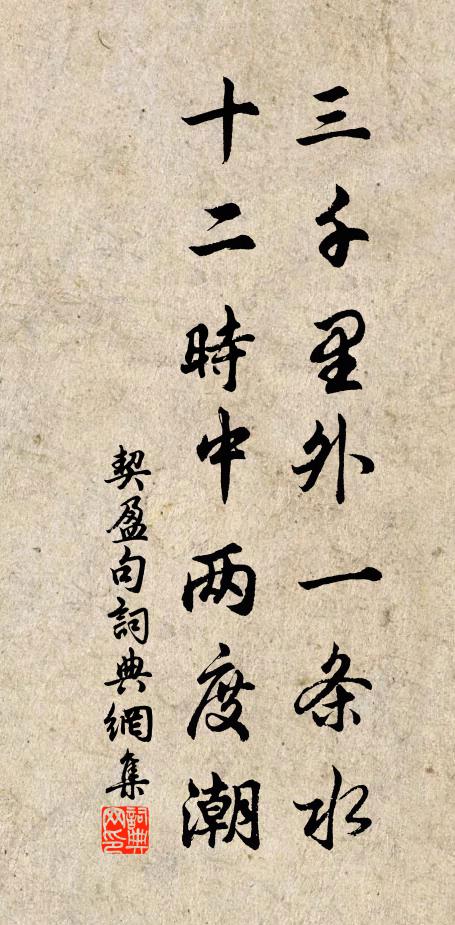 三千里外一条水
十二時中两度潮
契盈句詞典網集
詞典网印